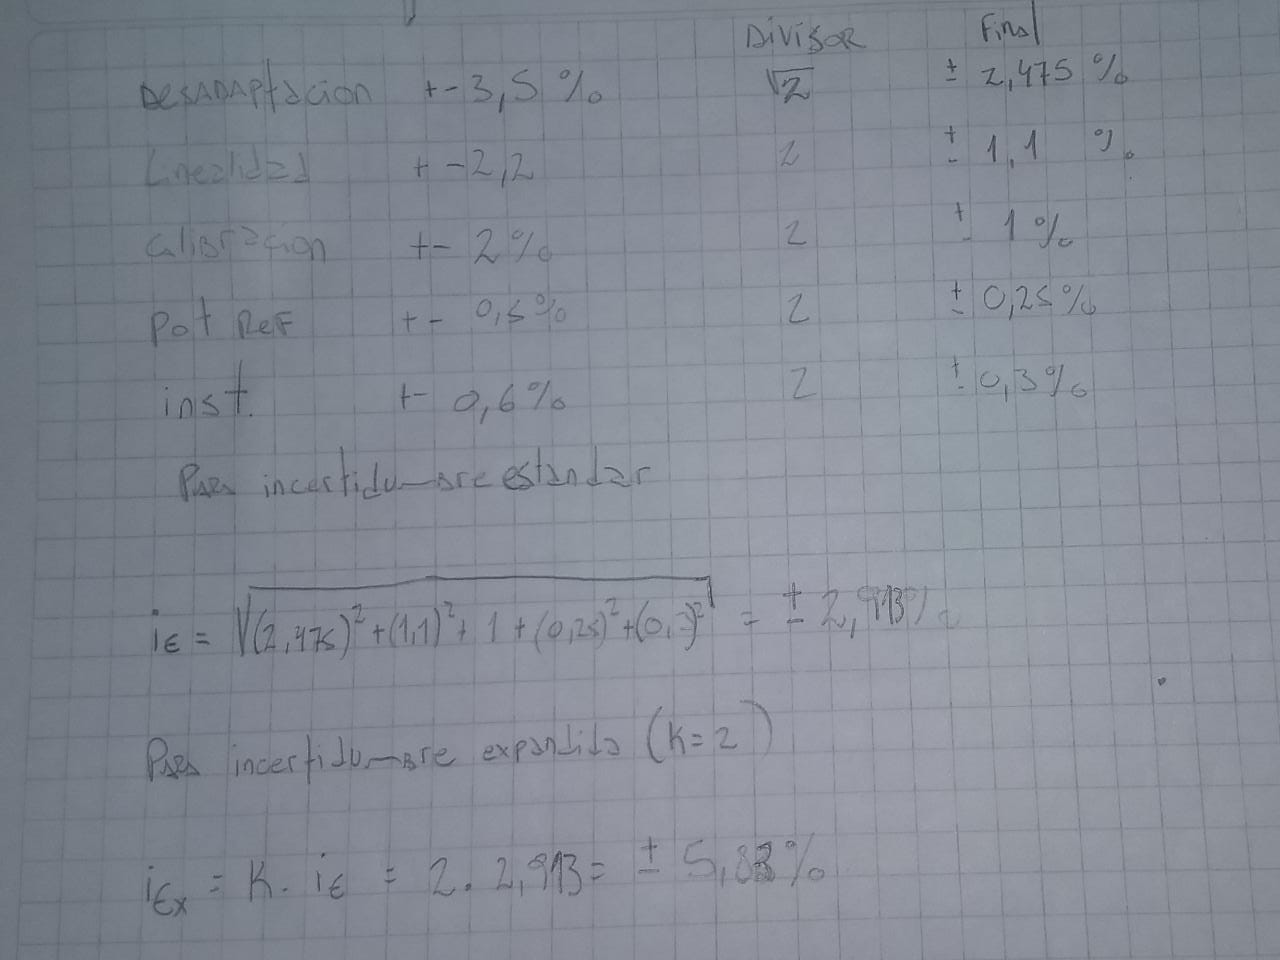 Divisor Final
Desadaptacion +-3,5% √2 ± 2,475 %
Linealidad +-2,2 2 ± 1,1 %
calibracion +- 2% 2 ± 1%
Pot Ref +- 0,5% 2 ± 0,25%
inst. +- 0,6% 2 ± 0,3%
Para incertidumbre estandar
iε = √(2,475)²+(1,1)²+ 1 +(0,25)²+(0, )² = ± 2,913%
Para incertidumbre expandida (K=2)
iεx = K. iε = 2. 2,913= ± 5,83%